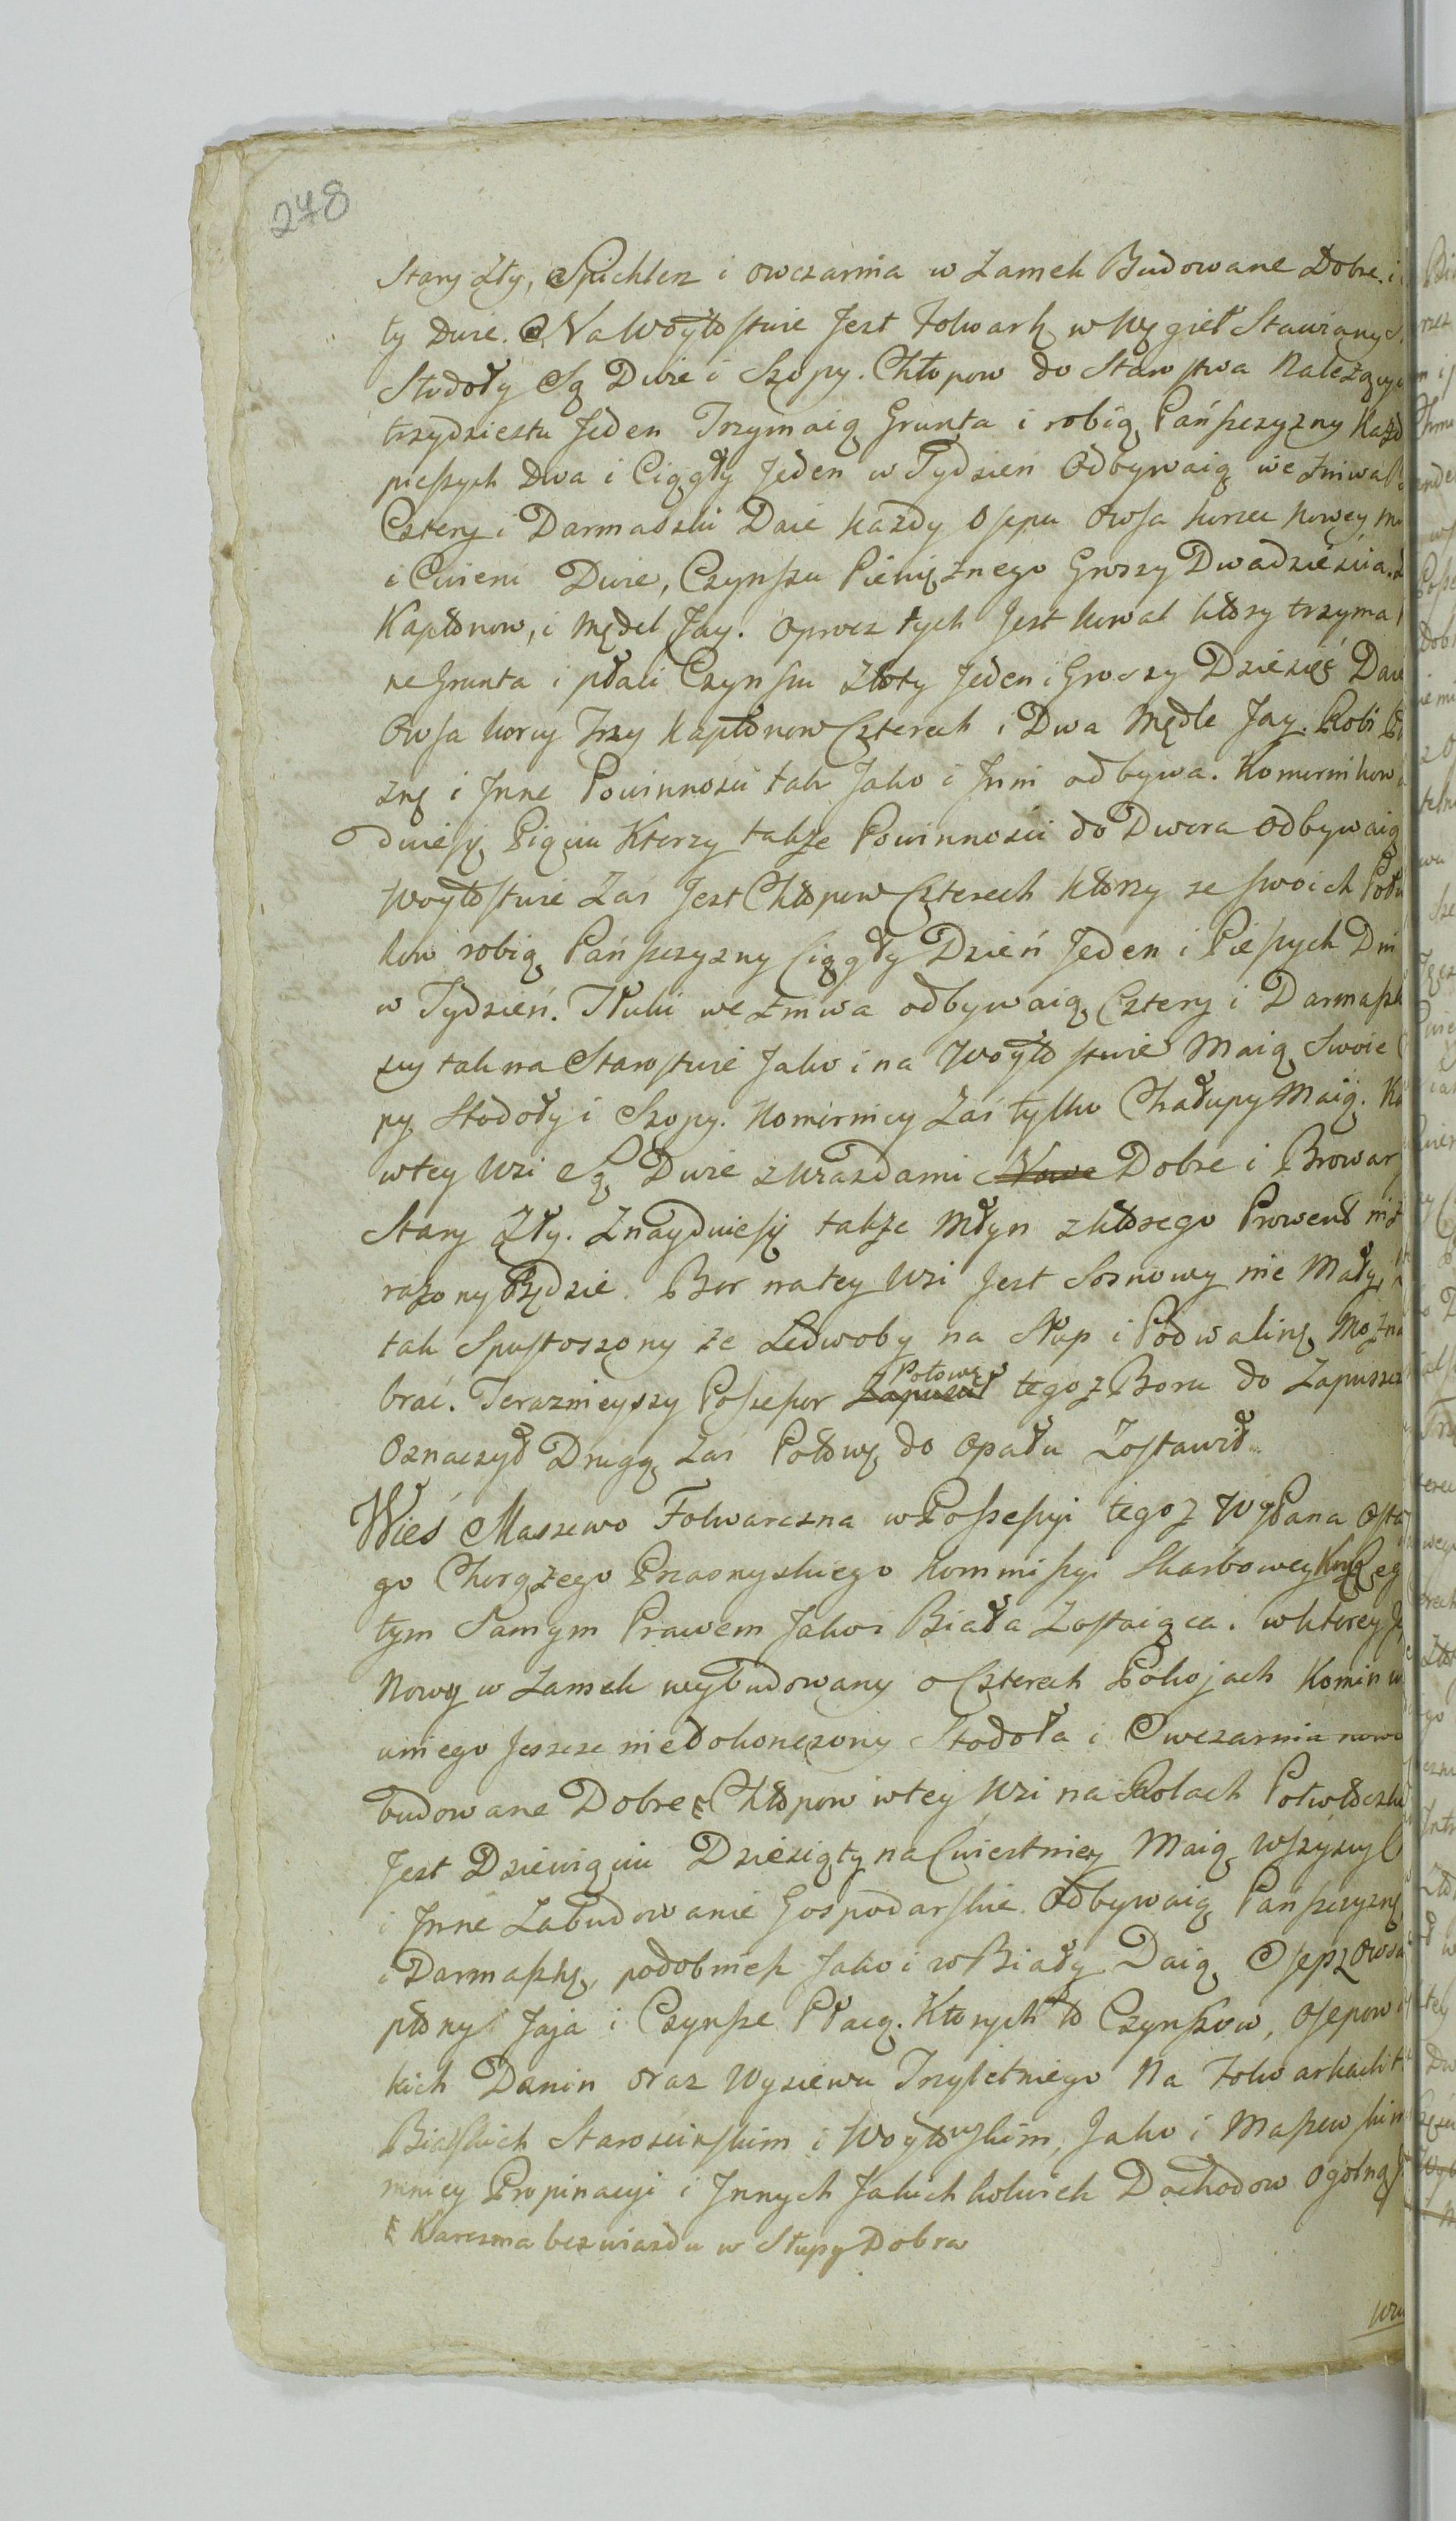 248
Stary Zły, Spichlerz i owczarnia w Zamek Budowane Dobre. i
ty Dwie. Na Woytostwie Jest Folwark w Węgieł Stawiany S.
Stodoły Są Dwie i Szopy. Chłopow do Starostwa Należący
trzydziestu Jeden Trzymaią Grunta i robią Pańszczyzny Każd
pieszych Dwa i Ciągły Jeden w Tydzień Odbywaią we Zniwa
Czterj i Darmaszki Daie każdy Osepu Owsa korzec nowey m
i Cwierci Dwie, Czynszu Pieniężnego Groszy Dwadzieścia.
Kapłonow, i Mędel Jay. oprocz tych Jest kowal ktory trzyma
ne Grunta i płaci Czynszu Złoty Jeden i Groszy Dziesięć Daie
Owsa korcy Trzy kapłonow Czterech i Dwa Mędle Jay. Robi
znę i Inne Powinnosci tak Jako i Inni odbywa. Komornikow
duiesię Pięciu Ktorzy takze Powinnosci do Dwora Odbywaią
Woytostwie Zas Jest Chłopow Czterech ktorzy ze swoich Połw
kow robią Pańszczyzny Ciągły Dzień Jeden i Pieszych Dni
w Tydzień. Tłuki we Zniwa odbywaią Cztery i Darmaszk
scy tak na Starostwie Jako i na Woytostwie Maią Swoie
py Stodoły i Szopy. Komornicy Zas tylko Chałupy Maią. Ka
w tey Wsi Są Dwie z Wiazdami Nowe Dobre i Browar
Stary Zły. Znayduiesię takze Młyn z ktorego Prowent ni
razony Będzie. Bor na tey Wsi Jest Sosnowy nie Mały,
tak Spustoszony ze Ledwoby na Słup i Podwalinę Mozna
brać. Teraznieyszy Possessor Zapuscił Połowę tegoz Boru do Zapuszcz
Oznaczył Drugą Zas Połowę do Opału Zostawił
Wieś Maszewo Folwarczna w Possessyi tegoz WJPana Osta
go Chorążego Przasnyskiego Kommissyi Skarbowey
tym Samym Prawem Jako i Biała Zostaiąca. w ktorey
Nowy w Zamek wybudowany o Czterech Pokojach Komin
u niego Jeszcze niedokończony Stodoła i Owczarnia nowo
budowane Dobre Chłopow w tey Wsi na Rolach Połwłoczk
Jest Dziewiąciu Dziesiąty na Cwiertniey Maią Wszyscy
i Inne Zabudowanie Gospodarskie. Odbywaią Pańszczyznę
i Darmaszkę, podobniesz Jako i w Biały Daią Osepz Owsa
płony Jaja i Czynsze Płacą. Ktorych to Czynszow, Osepow
kich Danin oraz Wysiewu Trzyletniego Na Folwarkach
Bialskich Starościnskim i Woytowskim, Jako i Maszewskim
mniey Propinacyi i Innych Jakichkolwiek Dochodow Ogolna
Karczma bez wiazdu w Słupy Dobra